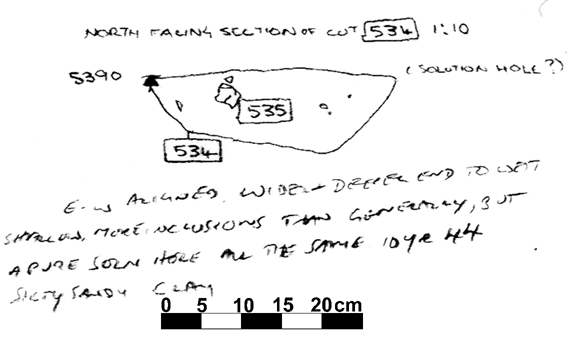 NORTH FACING SECTION OF CUT 534 1:10
5390
(SOLUTION HOLE?)
535
534
E-W ALIGNED. WIDER + DEEPER END TO WEST
SHALLOW, MORE INCLUSIONS THAN GENERALLY, BUT
A PURE SOLN HOLE ALL THE SAME 10YR 44
SILTY SANDY CLAY
0 5 10 15 20cm